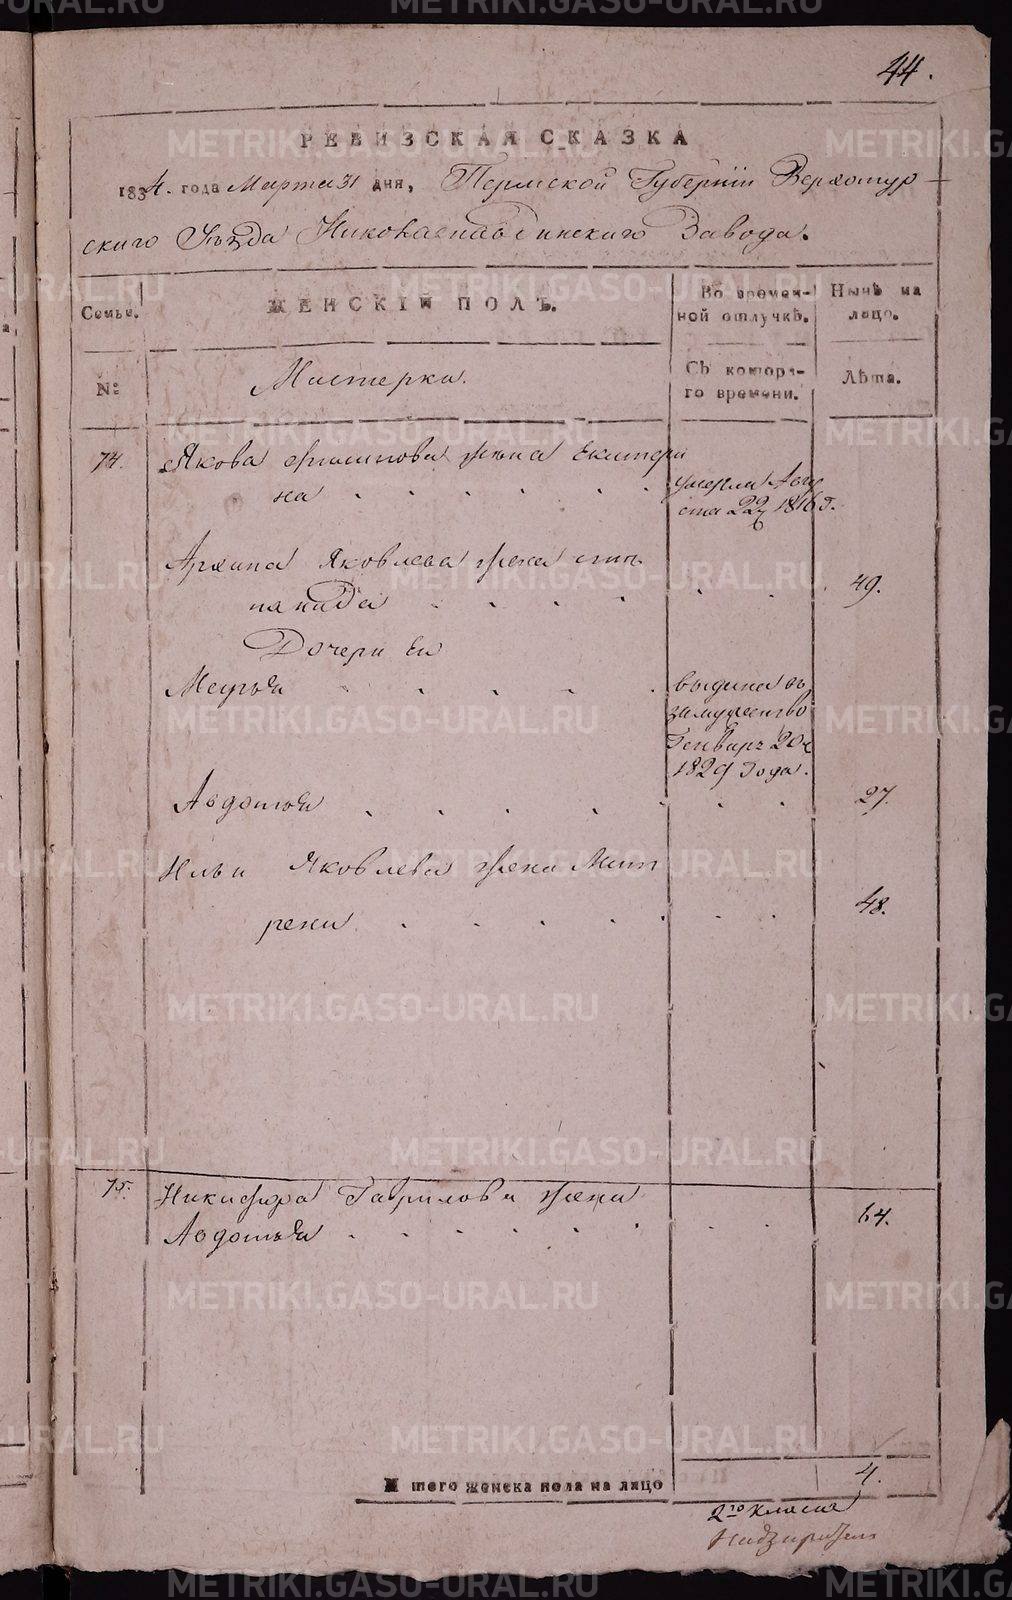 44.
РЕВИЗСКАЯ СКАЗКА
1834. года Марта 31 дня, Пермской Губернии Верхотур-
скаго Уѣзда Николаепавдинскаго Завода.
Семьи.
ЖЕНСКІЙ ПОЛЪ.
Во времен-
ной отлучкѣ.
Нынѣ на
лицо.
№
Мастерки.
Съ котора-
го времени.
Лѣта.
74.
Якова Филипова жена Екатери
на
умерла Авгу
ста 22 1816 г.
Архипа Яковлева жена Сте
панида
49.
Дочери ея
Марья
выдана въ
замужество
Генваря 20
1829 года.
Авдотья
27.
Ильи Яковлева жена Мат
рена
48.
75.
Никифора Гаврилова жена
Авдотья
64.
Итого женска пола на лицо
4.
2го класса
Надзиратель
METRIKI.GASO-URAL.RU